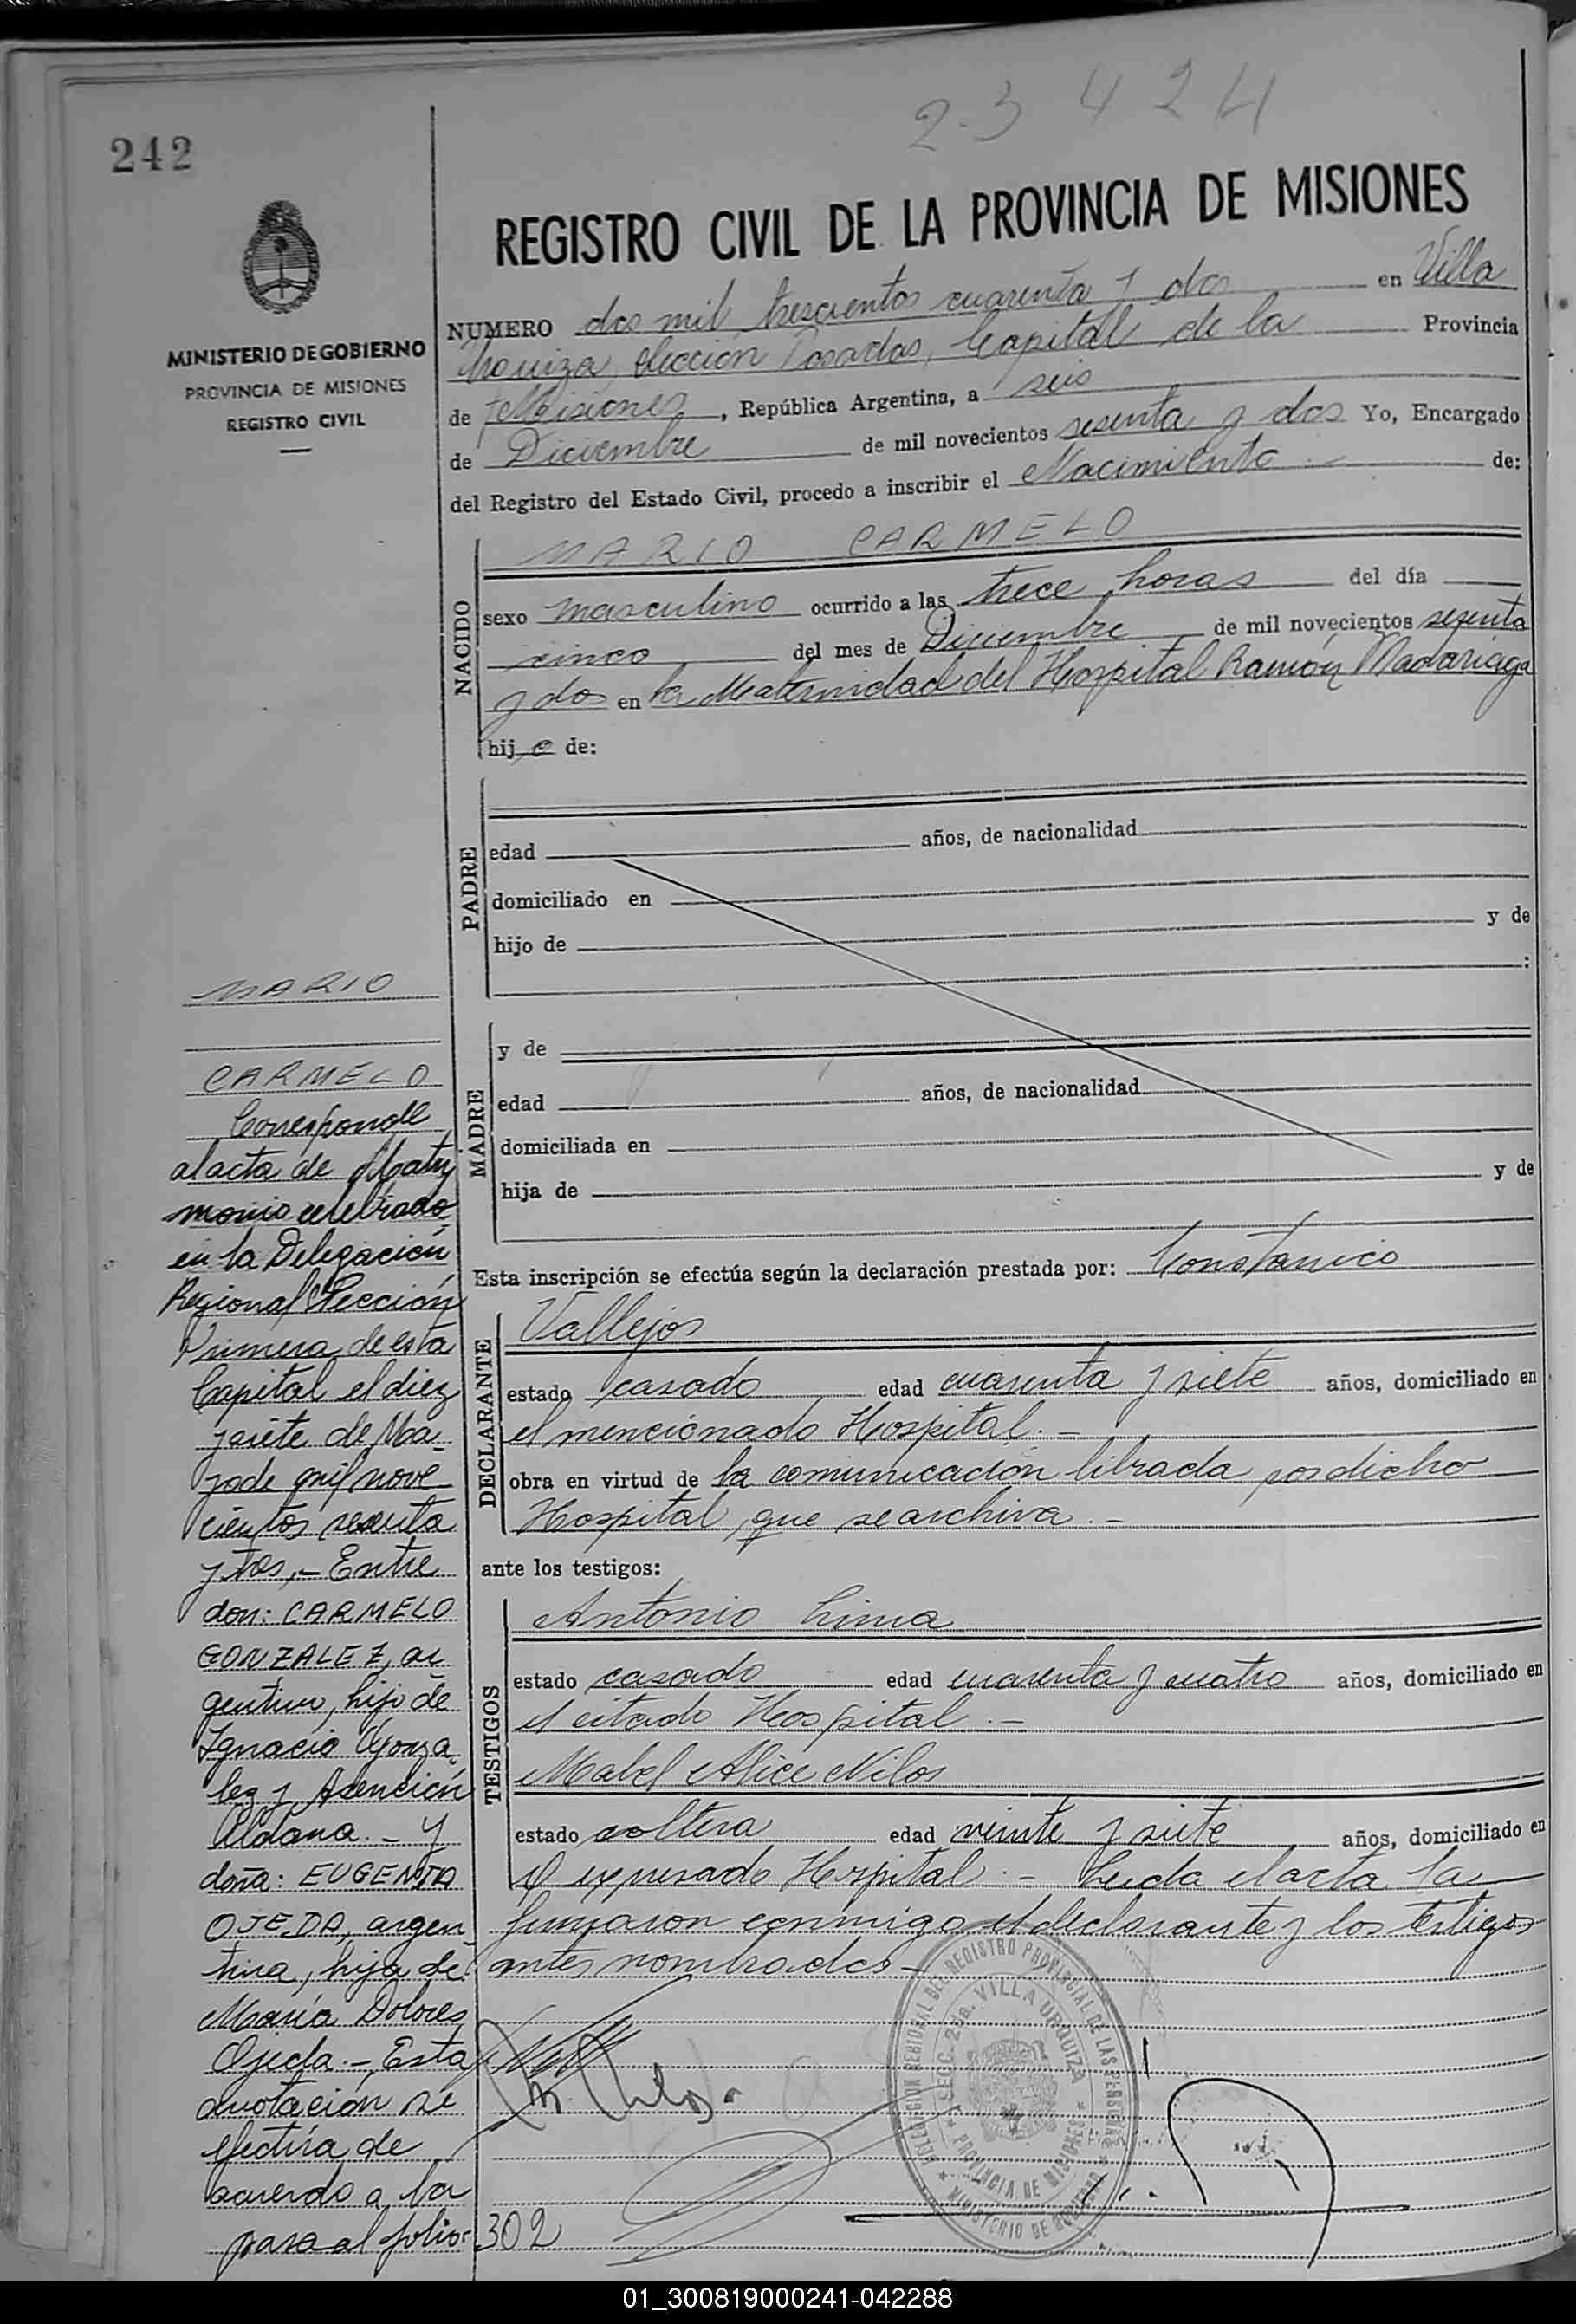 23424
242
MINISTERIO DE GOBIERNO
PROVINCIA DE MISIONES
REGISTRO CIVIL
REGISTRO CIVIL DE LA PROVINCIA DE MISIONES
NUMERO dos mil trescientos cuarenta y dos en Villa
Urquiza, Sección Posadas, Capital de la Provincia
de Misiones, República Argentina, a seis
de Diciembre de mil novecientos sesenta y dos Yo, Encargado
del Registro del Estado Civil, procedo a inscribir el Nacimiento de:
NACIDO
MARIO CARMELO
sexo masculino ocurrido a las trece horas del día
cinco del mes de Diciembre de mil novecientos sesenta
y dos en la Maternidad del Hospital Ramón Madariaga
hijo de:
PADRE
edad años, de nacionalidad
domiciliado en
hijo de y de
:
MADRE
y de
edad años, de nacionalidad
domiciliada en
hija de y de
Esta inscripción se efectúa según la declaración prestada por: Constancio
DECLARANTE
Vallejos
estado casado edad cuarenta y siete años, domiciliado en
el mencionado Hospital.-
obra en virtud de la comunicación librada por dicho
Hospital, que se archiva.-
ante los testigos:
TESTIGOS
Antonio Lima
estado casado edad cuarenta y cuatro años, domiciliado en
el citado Hospital.-
Mabel Alice Nilos
estado soltera edad veinte y siete años, domiciliado en
el expresado Hospital.- Leida el acta la
firmaron conmigo el declarante y los testigos
antes nombrados-
MARIO
CARMELO
Corresponde
al acta de Matri
monio celebrado
en la Delegación
Regional Sección
Primera de esta
Capital el diez
y siete de Ma-
yo de mil nove
cientos sesenta
y tres,- Entre
don: CARMELO
GONZALEZ, ar
gentino, hijo de
Ignacio Gonza-
lez y Asención
Aldana.- Y
doña: EUGENIA
OJEDA, argen
tina, hija de
María Dolores
Ojeda.- Esta
anotación se
efectúa de
acuerdo a la
pasa al folio 302
DELEGACION REGIONAL DEL REGISTRO PROVINCIAL DE LAS PERSONAS
SECC. 2da. VILLA URQUIZA
PROVINCIA DE MISIONES
MINISTERIO DE GOBIERNO
01_300819000241-042288